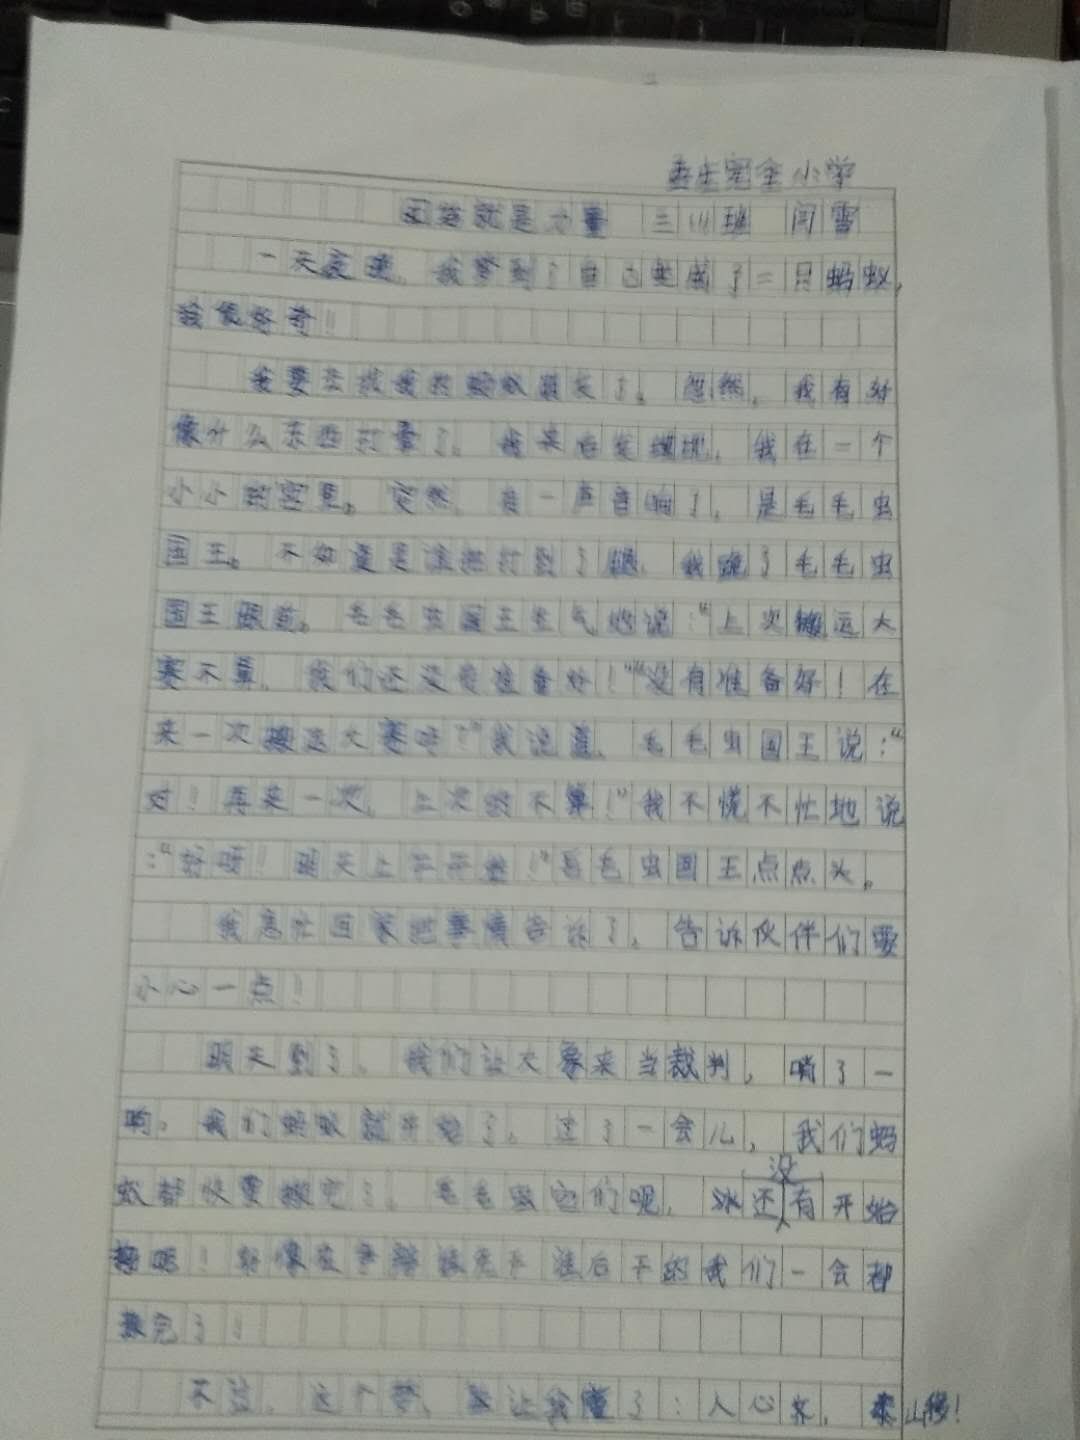 小学
团结就是力量 三(1)班 闫雪
一天夜里,我梦到了自己变成了一只蚂蚁,
我很好奇!
我要去找我的蚂蚁朋友了。忽然,我有好
像什么东西打晕了。我来后发现,我在一个
小小的宫里。突然,有一声音响了,是毛毛虫
国王。不知道是谁把打到了腿,我跪了毛毛虫
国王眼前。毛毛虫国王生气地说:“上次搬运大
赛不算,我们还没有准备好!”“没有准备好!在
来一次搬运大赛吗?”我说道,毛毛虫国王说:“
对!再来一次,上次的不算!”我不慌不忙地说
:“好呀!明天上午开始!”毛毛虫国王点点头。
我急忙回家把事情告诉了,告诉伙伴们要
小心一点!
明天到了,我们让大象来当裁判,哨了一
响。我们蚂蚁就开始了。过了一会儿,我们蚂
蚁都快要搬完了。毛毛虫它们呢,还没有开始
搬呢!好像在争辩谁先干谁后干的我们一会都
搬完了!
不过,这个梦,让我懂了:人心齐,泰山移!